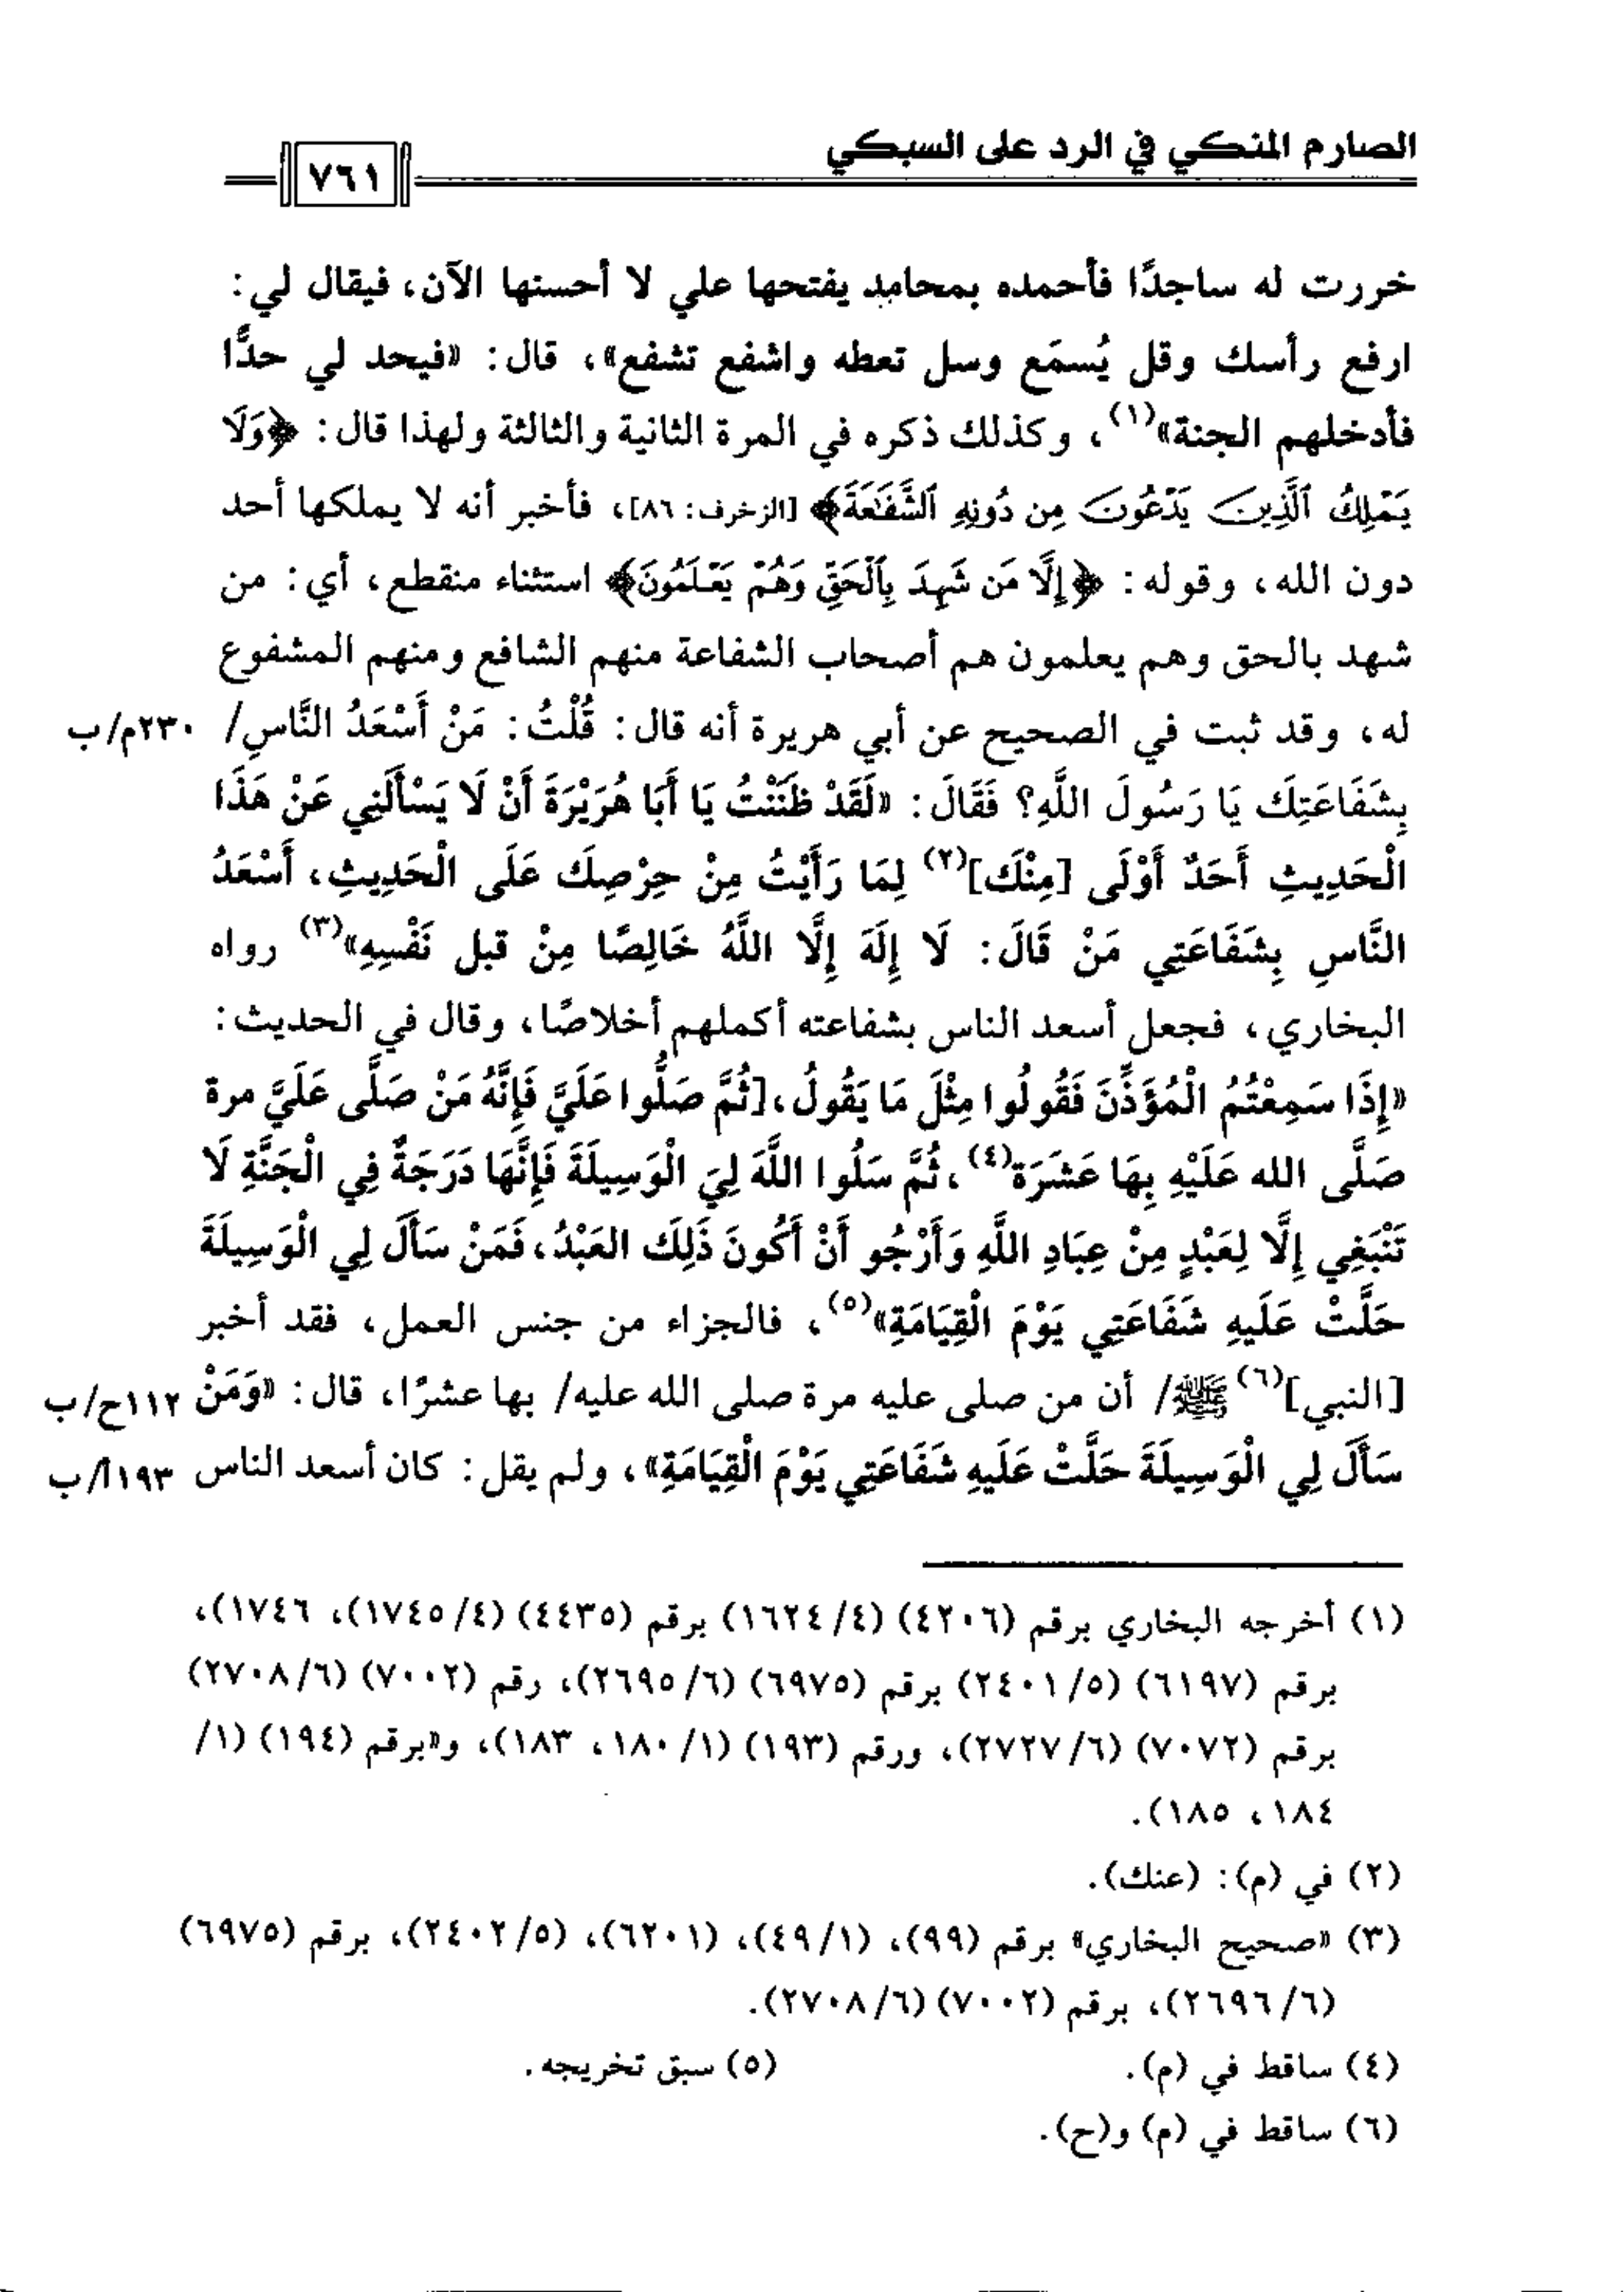 الصارم المنكي في الرد على السبكي
٧٦١
خررت له ساجدًا فأحمده بمحامد يفتحها علي لا أحسنها الآن، فيقال لي:
ارفع رأسك وقل يُسمَع وسل تعطه واشفع تشفع»، قال: «فيحد لي حدًّا
فأدخلهم الجنة»(١)، وكذلك ذكره في المرة الثانية والثالثة ولهذا قال: ﴿وَلَا
يَمْلِكُ ٱلَّذِينَ يَدْعُونَ مِن دُونِهِ ٱلشَّفَٰعَةَ﴾ [الزخرف: ٨٦]، فأخبر أنه لا يملكها أحد
دون الله، وقوله: ﴿إِلَّا مَن شَهِدَ بِٱلْحَقِّ وَهُمْ يَعْلَمُونَ﴾ استثناء منقطع، أي: من
شهد بالحق وهم يعلمون هم أصحاب الشفاعة منهم الشافع ومنهم المشفوع
له، وقد ثبت في الصحيح عن أبي هريرة أنه قال: قُلْتُ: مَنْ أَسْعَدُ النَّاسِ/ ٢٣٠م/ب
بِشَفَاعَتِكَ يَا رَسُولَ اللَّهِ؟ فَقَالَ: «لَقَدْ ظَنَنْتُ يَا أَبَا هُرَيْرَةَ أَنْ لَا يَسْأَلَنِي عَنْ هَذَا
الْحَدِيثِ أَحَدٌ أَوْلَى [مِنْكَ](٢) لِمَا رَأَيْتُ مِنْ حِرْصِكَ عَلَى الْحَدِيثِ، أَسْعَدُ
النَّاسِ بِشَفَاعَتِي مَنْ قَالَ: لَا إِلَهَ إِلَّا اللَّهُ خَالِصًا مِنْ قبل نَفْسِهِ»(٣) رواه
البخاري، فجعل أسعد الناس بشفاعته أكملهم أخلاصًا، وقال في الحديث:
«إِذَا سَمِعْتُمُ الْمُؤَذِّنَ فَقُولُوا مِثْلَ مَا يَقُولُ، [ثُمَّ صَلُّوا عَلَيَّ فَإِنَّهُ مَنْ صَلَّى عَلَيَّ مرة
صَلَّى الله عَلَيْهِ بِهَا عَشَرَة(٤)، ثُمَّ سَلُوا اللَّهَ لِيَ الْوَسِيلَةَ فَإِنَّهَا دَرَجَةٌ فِي الْجَنَّةِ لَا
تَنْبَغِي إِلَّا لِعَبْدٍ مِنْ عِبَادِ اللَّهِ وَأَرْجُو أَنْ أَكُونَ ذَلِكَ العَبْدُ، فَمَنْ سَأَلَ لِي الْوَسِيلَةَ
حَلَّتْ عَلَيهِ شَفَاعَتِي يَوْمَ الْقِيَامَةِ»(٥)، فالجزاء من جنس العمل، فقد أخبر
[النبي](٦) ﷺ/ أن من صلى عليه مرة صلى الله عليه/ بها عشرًا، قال: «وَمَنْ ١١٢ح/ب
سَأَلَ لِي الْوَسِيلَةَ حَلَّتْ عَلَيهِ شَفَاعَتِي يَوْمَ الْقِيَامَةِ»، ولم يقل: كان أسعد الناس ١٩٣أ/ب
(١) أخرجه البخاري برقم (٤٢٠٦) (٤/ ١٦٢٤) برقم (٤٤٣٥) (٤/ ١٧٤٥)، ١٧٤٦)،
برقم (٦١٩٧) (٥/ ٢٤٠١) برقم (٦٩٧٥) (٦/ ٢٦٩٥)، رقم (٧٠٠٢) (٦/ ٢٧٠٨)
برقم (٧٠٧٢) (٦/ ٢٧٢٧)، ورقم (١٩٣) (١/ ١٨٠، ١٨٣)، و«برقم (١٩٤) (١/
١٨٤، ١٨٥).
(٢) في (م): (عنك).
(٣) «صحيح البخاري» برقم (٩٩)، (١/ ٤٩)، (٦٢٠١)، (٥/ ٢٤٠٢)، برقم (٦٩٧٥)
(٦/ ٢٦٩٦)، برقم (٧٠٠٢) (٦/ ٢٧٠٨).
(٤) ساقط في (م). (٥) سبق تخريجه.
(٦) ساقط في (م) و(ح).